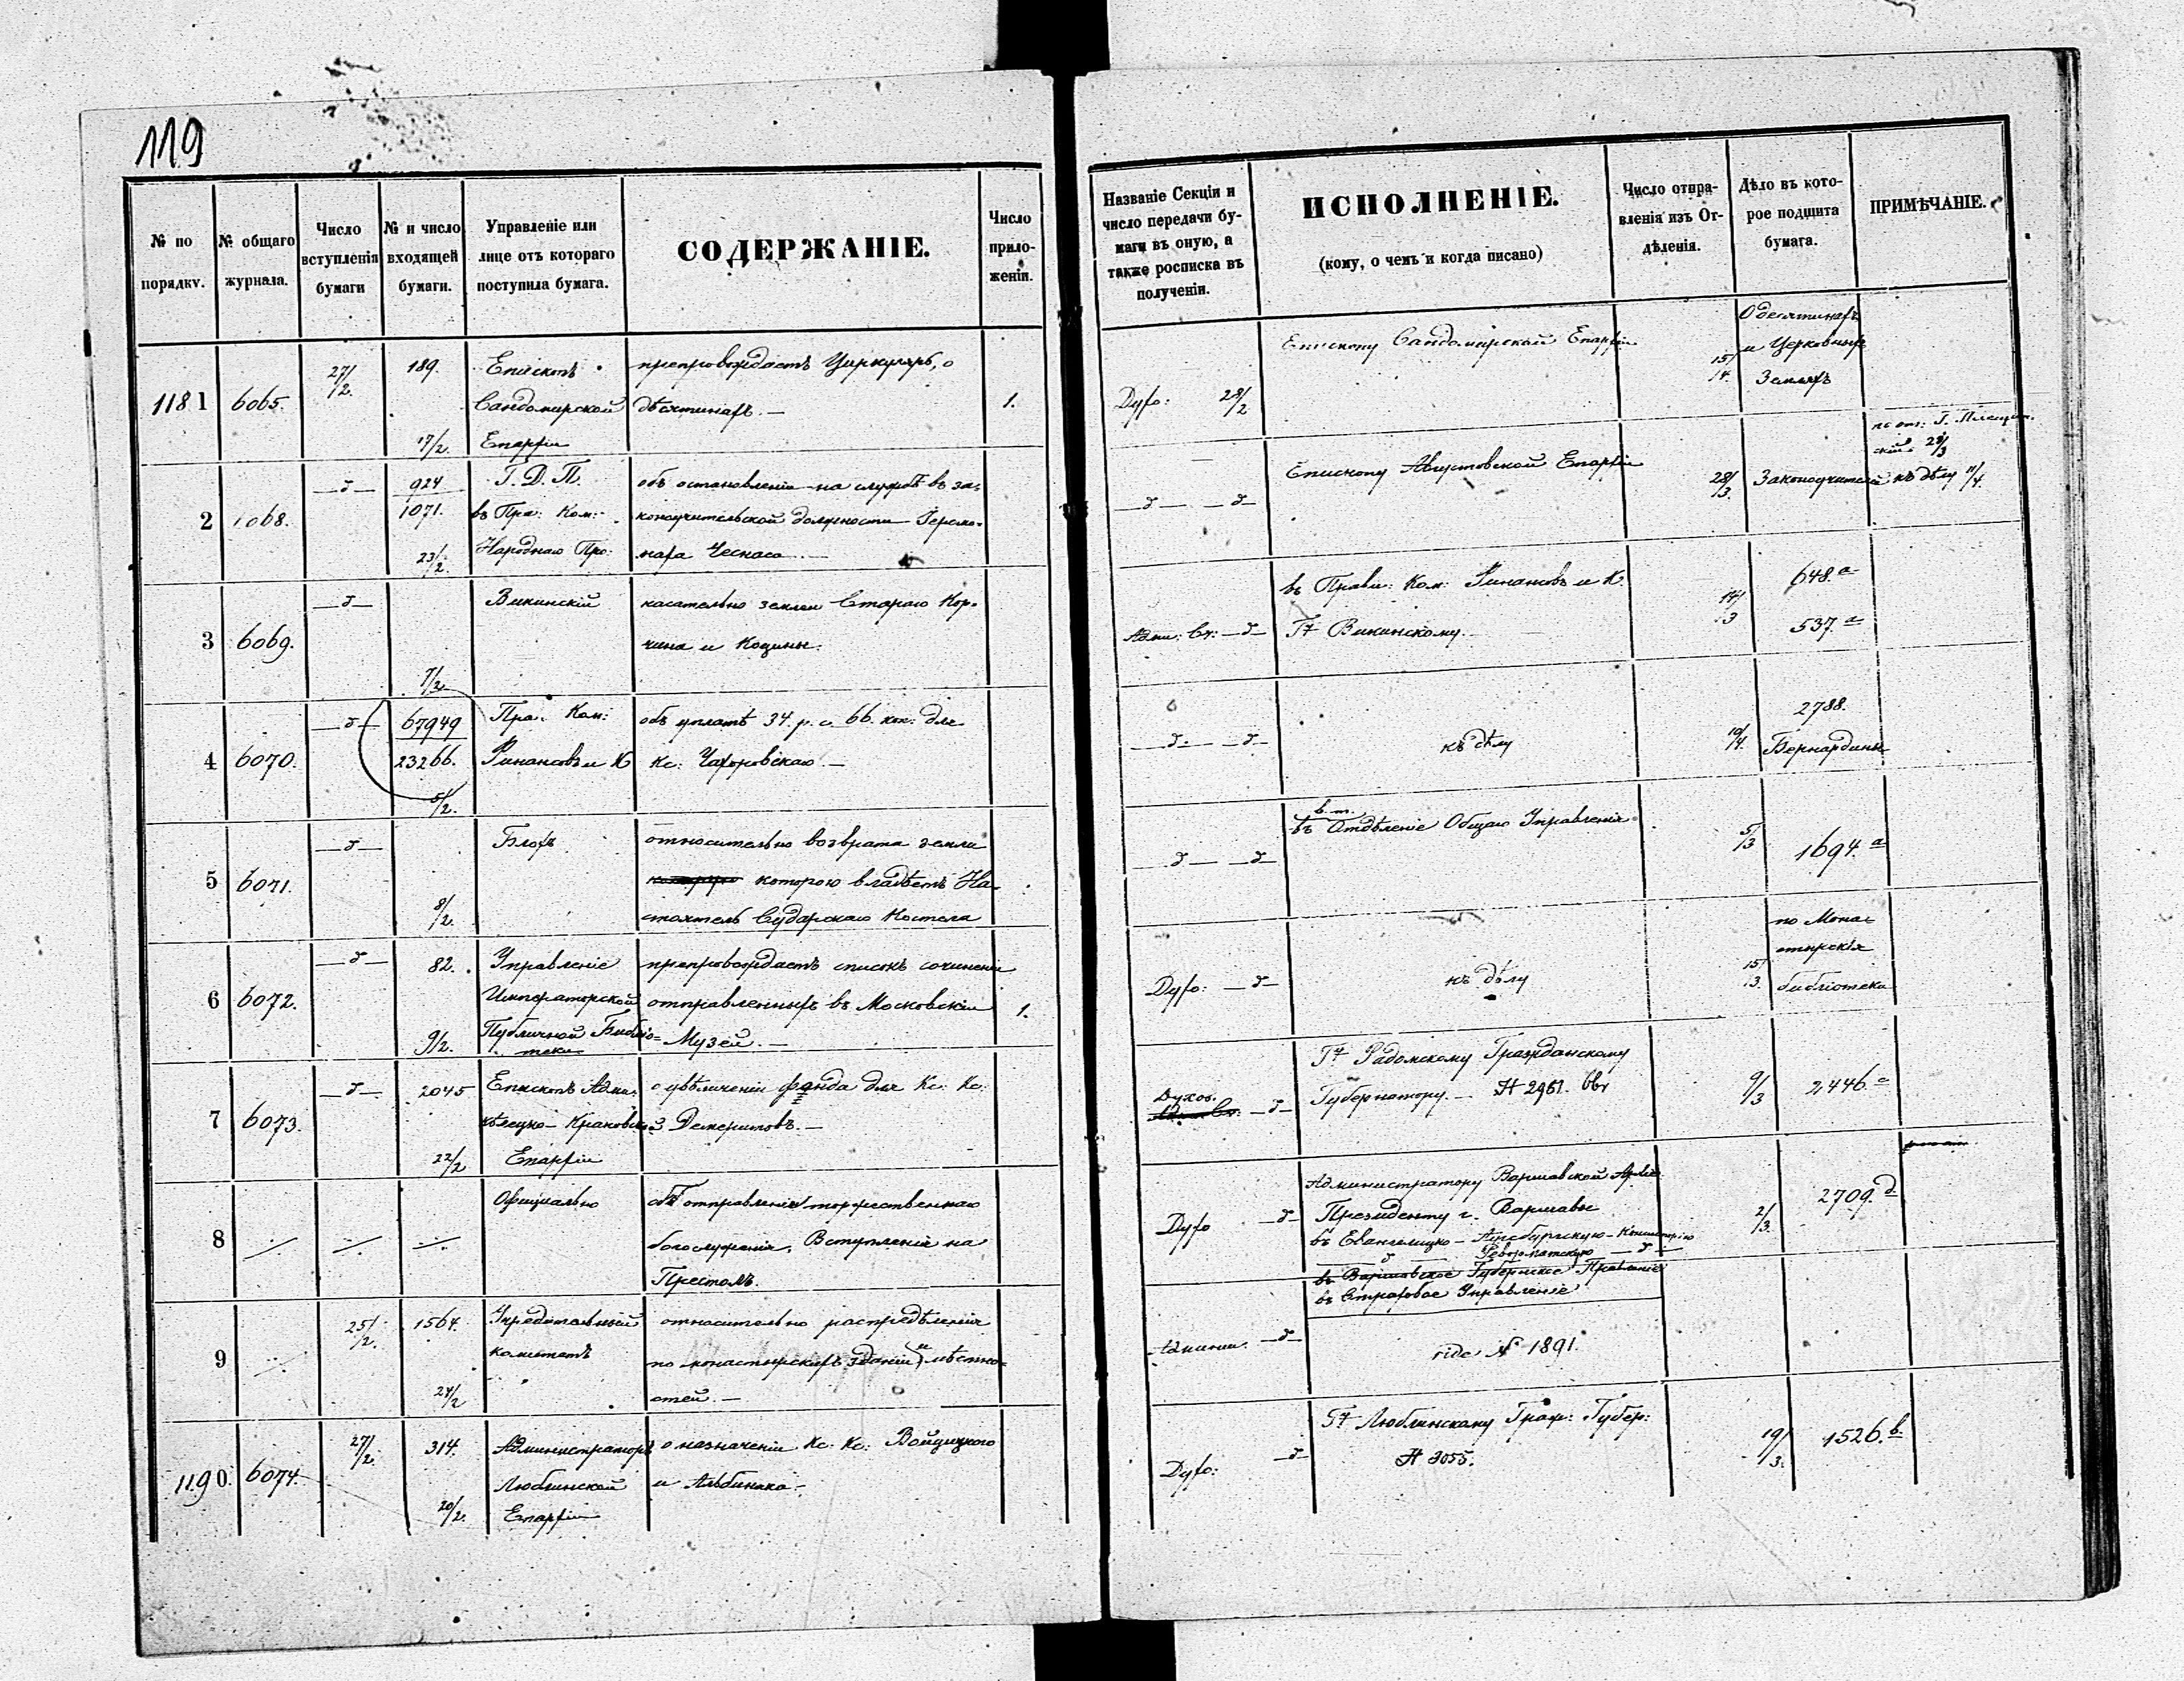 119
№ по порядку.
№ общаго журнала.
Число вступленія бумаги
№ и число входящей бумаги.
Управленіе или лице отъ котораго поступила бумага.
СОДЕРЖАНІЕ.
Число приложеній.
Названіе Секціи и число передачи бумаги въ оную, а также росписка въ полученіи.
ИСПОЛНЕНІЕ.
(кому, о чемъ и когда писано)
Число отправленія изъ Отдѣленія.
Дѣло въ которое подшита бумага.
ПРИМѢЧАНІЕ.
1181 6065. 27/2. 189. 17/2.
Епископъ
Сандомирской
Епархіи
препровождаетъ Циркуляръ, о
десятинахъ. —
1.
Духо: 28/2
Епископу Сандомирской Епархіи
15/4.
О десятинахъ
и Церковныхъ
Земляхъ
2 6068. —д— 924 1071. 23/2.
Г. Д. П.
въ Пра: Ком:
Народнаго Про:
объ оставленіи на службѣ въ за-
коноучительской должности
Чеснаса. —
—д— —д—
Епископу Августовской Епархіи
28/3.
Законоучители
къ дѣлу 11/4.
3 6069. —д— 7/2
Викинскій
касательно земли Стараго Кор-
чина и
Адми: Сч: —д—
въ Прави: Ком: Финансовъ и К
Гну Викинскому.
14/3
648.а
537.а
4 6070. —д— 67949 23266. 5/2.
Пра: Ком:
Финансовъ и К
объ уплатѣ 34. р. с. 66. коп. для
Кс: —
—д— —д—
къ дѣлу
10/4.
2788.
Бернардины
5 6071. —д— 8/2.
Блохъ
относительно возврата земли
которою владѣетъ На-
стоятель Сударскаго Костела
—д— —д—
въ Отдѣленіе Общаго Управленія
5/3
1694.а
6 6072. —д— 82. 9/2.
Управленіе
Императорской
Публичной Библіо-
теки
препровождаетъ списокъ сочиненій
отправленныхъ въ Московскій
Музей. —
1.
Духо: —д—
къ дѣлу
15/3.
по Мона-
стырскія
библіотеки
7 6073. —д— 2045 22/2
Епископъ Адми:
Кѣлецко-Краковской
Епархіи
о увѣличеніи фонда для Кс: Кс:
Демеритовъ. —
Духов. —д—
Гну Радомскому Гражданскому
Губернатору. — № 2961.
9/3
2446.с
8
Офиціально
объ отправленіи торжественнаго
богослуженія, Вступленія на
Престолъ.
Духо —д—
Администратору Варшавской Архіе:
Президенту г. Варшавы
въ Евангелицко-Аугсбургскую Консисторію
д Реформатскую —д—
въ Варшавское Губернское Правленіе
въ Страховое Управленіе
2/3
2709.д
9 25/2. 1564. 24/2
Учредительный
комитетъ
относительно распредѣленія
по монастырскихъ зданій и мѣстно-
стей. —
—д—
vide № 1891.
1190. 6074. 27/2. 314. 20/2.
Администраторъ
Люблинской
Епархіи
о назначеніи Кс: Кс: Войцицкого
и Альбинака —
Духо: —д—
Гну Люблинскому Граж: Губер:
№ 3055.
19/3.
1526.b.